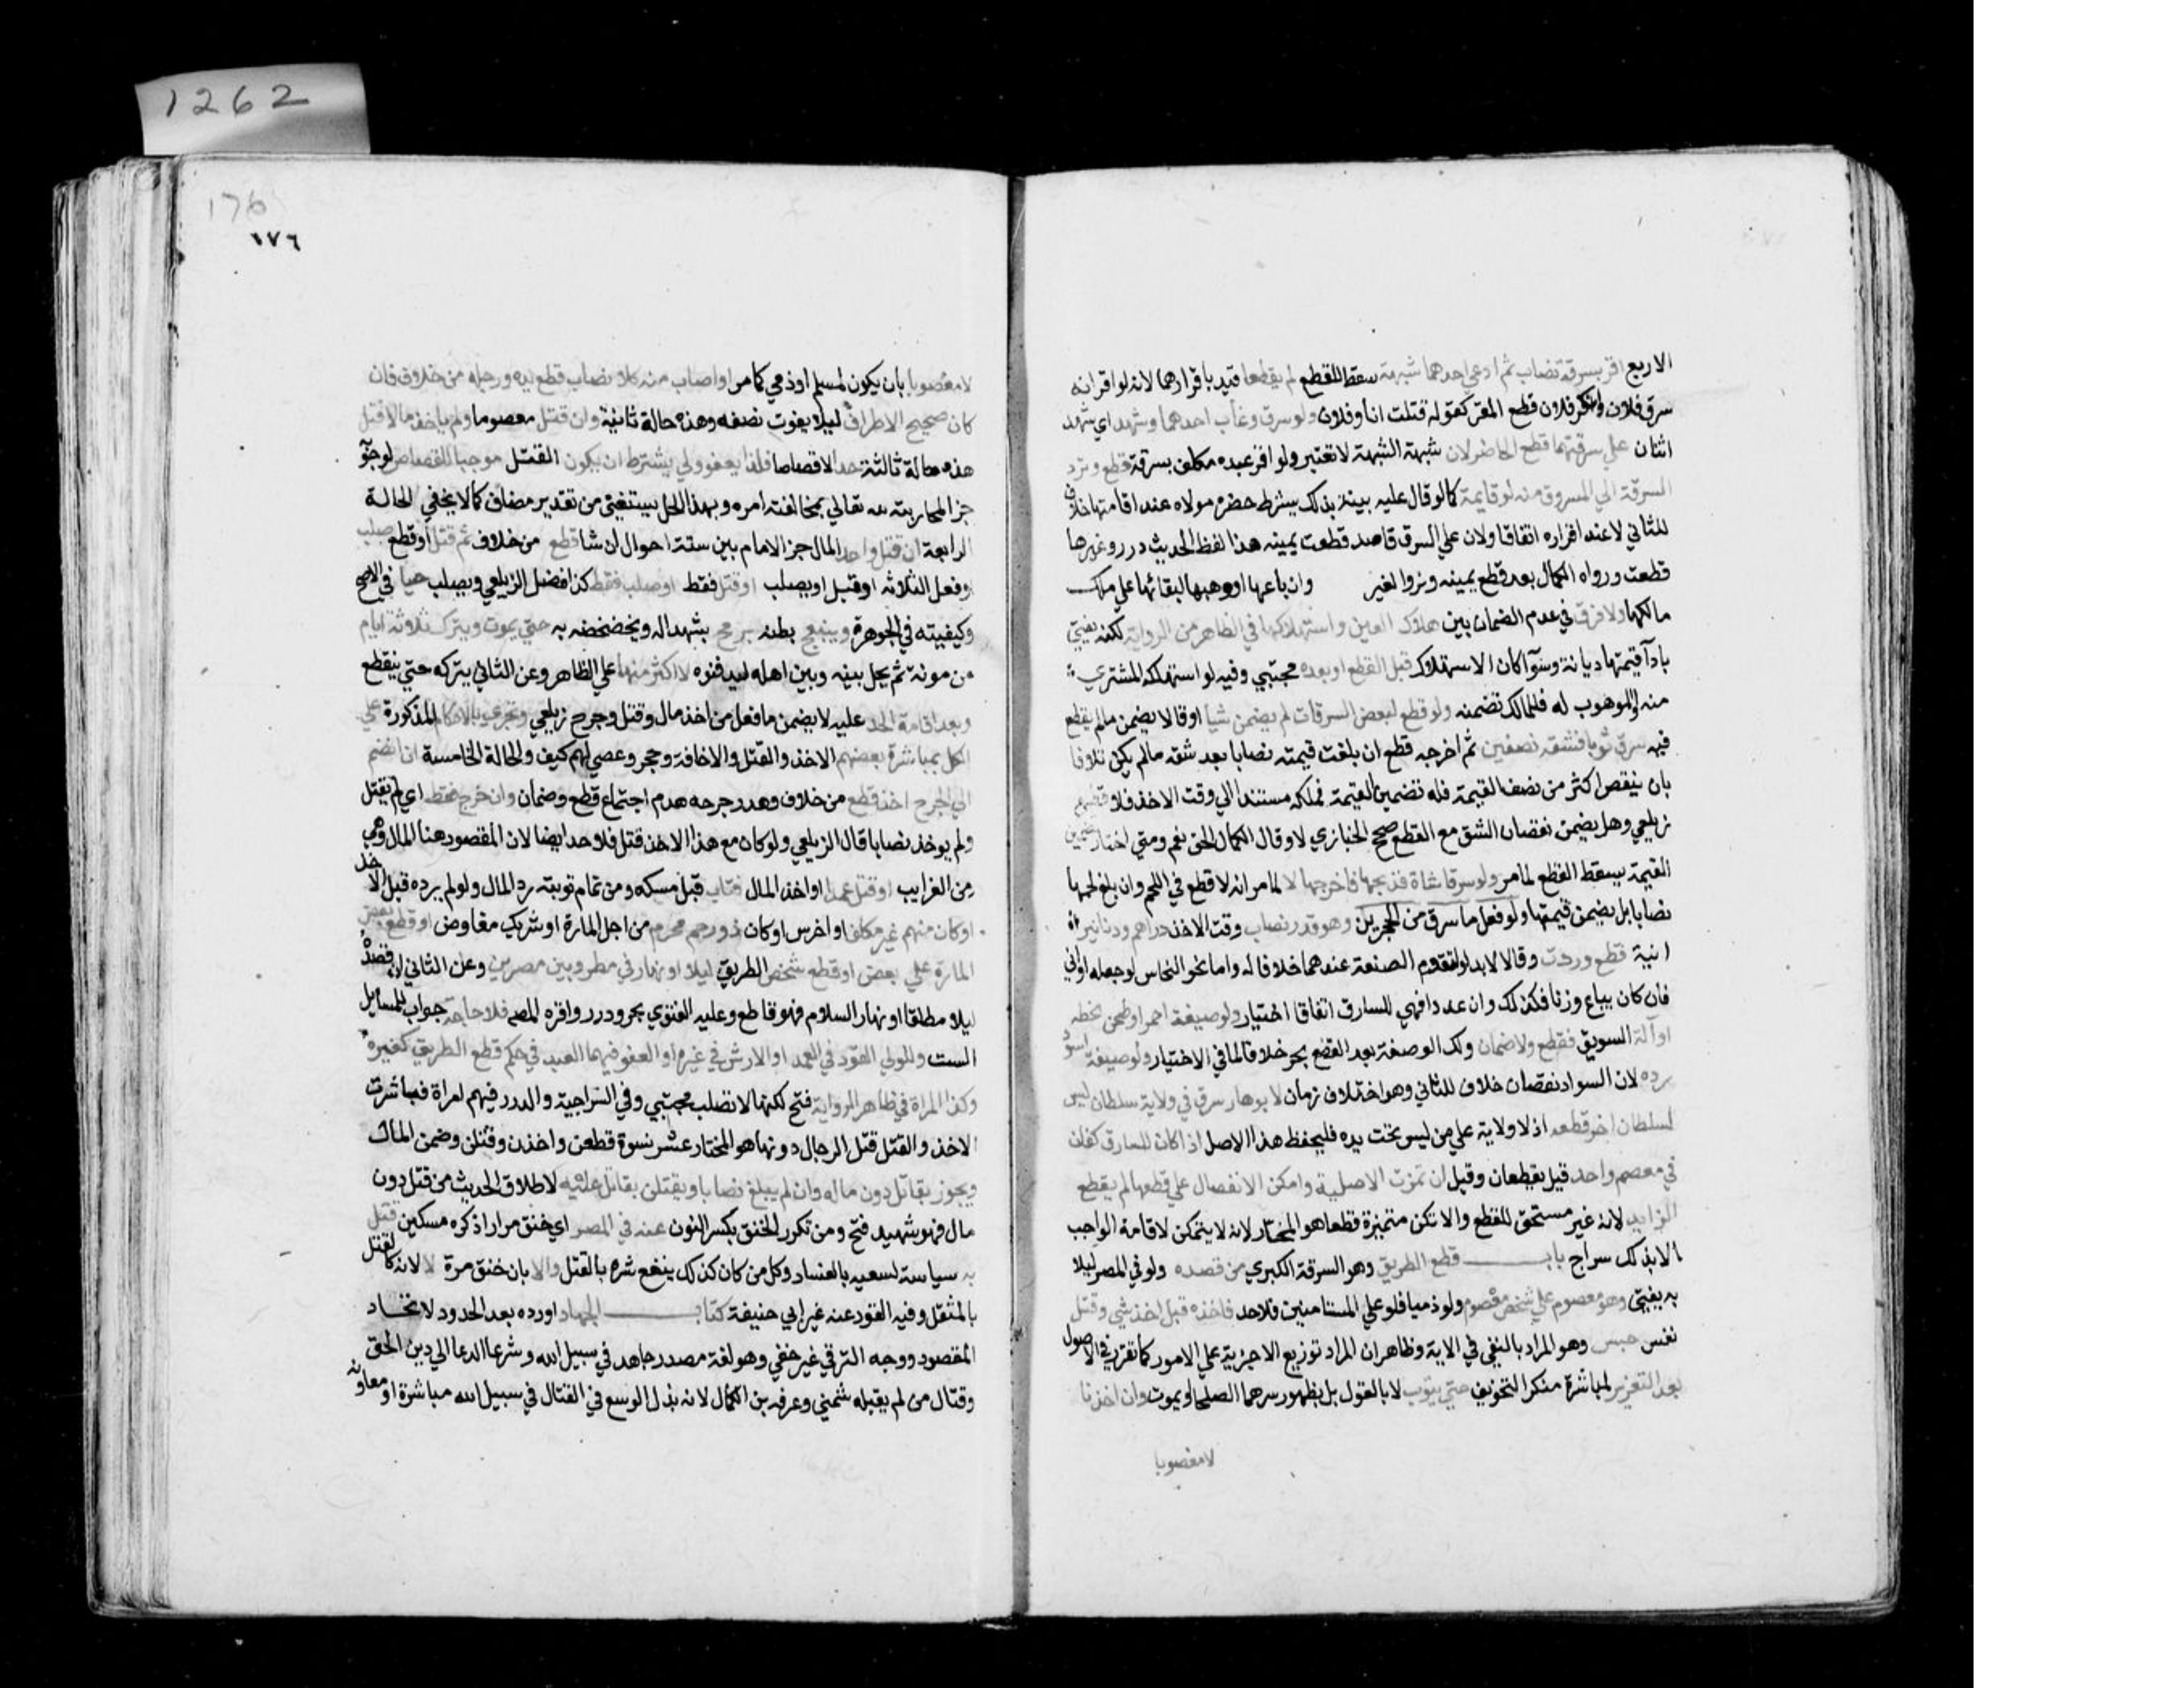 الاربع اقر بسرقة نصاب ثم ادعي احدهما شبهة سقط القطع لم يقطعا قيد باقرارهما لانه لو اقر انه
سرق فلان وانكر فلان قطع المقر كقوله قتلت انا وفلان ولو سرق وغاب احدهما وشهد اي شهد
اثنان علي سرقتهما قطع الحاضر لان شبهة الشبهة لا تعتبر ولو اقر عبده مكلف بسرقة قطع وترد
السرقة الي المسروق منه لو قايمة كما لو قال عليه بينة بذلك بشرط حضره مولاه عند اقامتها خلاف
للثاني لا عند اقراره اتفاقا ولان علي السرق قاصد قطعت يمينه هذا لفظ الحديث درر وغيرها
قطعت ورواه الكمال بعد قطع يمينه وتروا لغير وان باعها اووهبها لبقائها علي ملك
مالكها ولا فرق في عدم الضمان بين هلاك العين واستهلاكها في الظاهر من الرواية لكنه يفتي
بادآ قيمتها ديانة وسوآ كان الاستهلاك قبل القطع او بعده مجتبي وفيه لو استهلكه المشتري
منه والموهوب له فللمالك تضمنه ولو قطع لبعض السرقات لم يضمن شيا اوقالا يضمن ما لم يقطع
فيه سرق ثوبا فشقه نصفين ثم اخرجه قطع ان بلغت قيمته نصابا بعد شقه مالم يكن تلافا
بان ينقص اكثر من نصف القيمة فله تضمين القيمة فملكه مستندا الي وقت الاخذ فلا قطع
زيلعي وهل يضمن نقصان الشق مع القطع صحح الخبازي لا وقال الكمال الحق نعم ومتي اختار تضمين
القيمة يسقط القطع لما مر ولو سرق شاة فذبحها فاخرجها لا لما مر انه لا قطع في اللحم وان بلغ لحمها
نصابا بل يضمن قيمتها ولو فعل ما سرق من الحجرين وهو قدر نصاب وقت الاخذ دراهم ودنانير
انية قطع وردت وقالا لا بد لو لتقدم الصنعة عندهما خلافا له واما نحو النحاس لو جعله اواني
فان كان يباع وزنا فكذلك وان عددا فهي للسارق اتفاقا اختيار ولو صيغه احمر او طحن حنطه
او آلة السويق فقطع ولا ضمان وكذا لو صبغه بعد القطع بحر خلافا لما في الاختيار ولو صبغه اسود
رده لان السواد نقصان خلاف للثاني وهو اختلاف زمان لا برهان سرق في ولاية سلطان ليس
لسلطان اخر قطعه اذ لا ولاية علي من ليس تحت يده فليحفظ هذا الاصل اذا كان للسارق كفان
في معصم واحد قيل يقطعان وقيل ان تمزت الاصلية وامكن الانفصال علي قطعها لم يقطع
الزايد لانه غير مستحق للقطع والا تكن متميزة قطعا هو المختار لانه لا يتمكن لاقامة الواجب
الا بذلك سراج باب قطع الطريق وهو السرقة الكبري من قصده ولو في المصر ليلا
به يفتي وهو معصوم علي شخص معصوم ولو ذميا فلو علي المستامنين فلا حد فاخذه قبل اخذ شي وقتل
نفس حبس وهو المراد بالنفي في الاية وظاهر ان المراد توزيع الاجزية علي الامور كما تقرر في الاصول
بعد التعزير لمباشرة منكر التخويف حتي يتوب لا بالقول بل بظهور سرهما الصلحا او يموت وان اخذ نا
لا مغصوبا
1262
176
١٧٦
لا مغصوبا بان يكون لمسلم اوذمي كما مر او اصاب منه كلا نصاب قطع يده ورجله من خلاف فان
كان صحيح الاطراف ليلا يفوت نصفه وهذه حالة ثانية وان قتل معصوما ولم ياخذ مالا قتل
هذه حالة ثالثة حدا لا قصاصا فلذا يعفو ولي يشترط ان يكون القتل موجبا للقصاص لوجوب
جز المحاربته لله تعالي بمخالفته امره وبهذا الحل يستغني من تقدير مضاف كما لا يخفي الحالة
الرابعة ان قتل واخذ المال جز الامام بين ستة احوال ان شا قطع من خلاف ثم قتل او قطع صلب
وفعل الثلاثه او قتل اويصلب او قتل فقط او صلب فقط كذا فصل الزيلعي ويصلب حيا في الاصح
وكيفيته في الجوهرة ويبعج بطنه برمح بشهد اله ويخضخضه به حتي يموت ويترك ثلاثة ايام
من مونة ثم يحل بينه وبين اهله ليدفنوه لا اكثر منها علي الظاهر وعن الثاني يتركه حتي ينقطع
وبعد اقامة الحد عليه لا يضمن ما فعل من اخذ مال وقتل وجرح زيلعي وتجري بالاحكام المذكورة علي
الكل بمباشرة بعضهم الاخذ والقتل والاخافة وحجر وعصي لهم كيف والحالة الخامسة ان انضم
الي الجرح اخذ قطع من خلاف وهدر جرحه هدم اجتماع قطع وضمان وان خرج فقط اي لم يقتل
ولم يوخذ نصابا قال الزيلعي ولو كان مع هذا الاخذ قتل فلا حد ايضا لان المقصود هنا المال وهي
من الغرايب او قتل عمدا او اخذ المال فتاب قبل مسكه ومن تمام توبته رد المال ولو لم يرده قبل الاخذ
او كان منهم غير مكلف او اخرس او كان ذو رحم محرم من اجل المارة او شريك مفاوض او قطع بعض
المارة علي بعض او قطع شخص الطريق ليلا او نهار في مطر وبين مصرين وعن الثاني لانه قصده
ليلا مطلقا او نهار السلام فهو قاطع وعليه الفتوي بحر ودرر واقره المصم فلا حاجة جواب للمسايل
الست وللولي القود في العمد او الارش في غيره او العفو فيهما العبد في حكم قطع الطريق كغيره
وكذا المراة في ظاهر الرواية فتح لكنها لا تصلب مجتبي وفي السراجية والدرر فيهم امراة فباشرت
الاخذ والقتل قتل الرجال دونها هو المختار عشر نسوة قطعن واخذن وقتلن وضمن المال
ويجوز يقاتل دون ماله وان لم يبلغ نصابا ويقتلن يقاتل عليه لاطلاق الحديث من قتل دون
مال فهو شهيد فتح ومن تكرر الخنق بكسر النون عنه في المصر اي خنق مرارا ذكره مسكين قتل
به سياسة لسعيه بالفساد وكل من كان كذلك يندفع شره بالقتل والا بان خنق مرة لا لانه كالقتل
بالمثقل وفيه القود عنه غير ابي حنيفة كتاب الجهاد اورده بعد الحدود لاتحاد
المقصود ووجه الترقي غير خفي وهو لغة مصدر جاهد في سبيل الله وشرعا الدعا الي دين الحق
وقتال من لم يقبله شمني وعرفه بن الكمال لانه بذل الوسع في القتال في سبيل الله مباشرة او معاونه